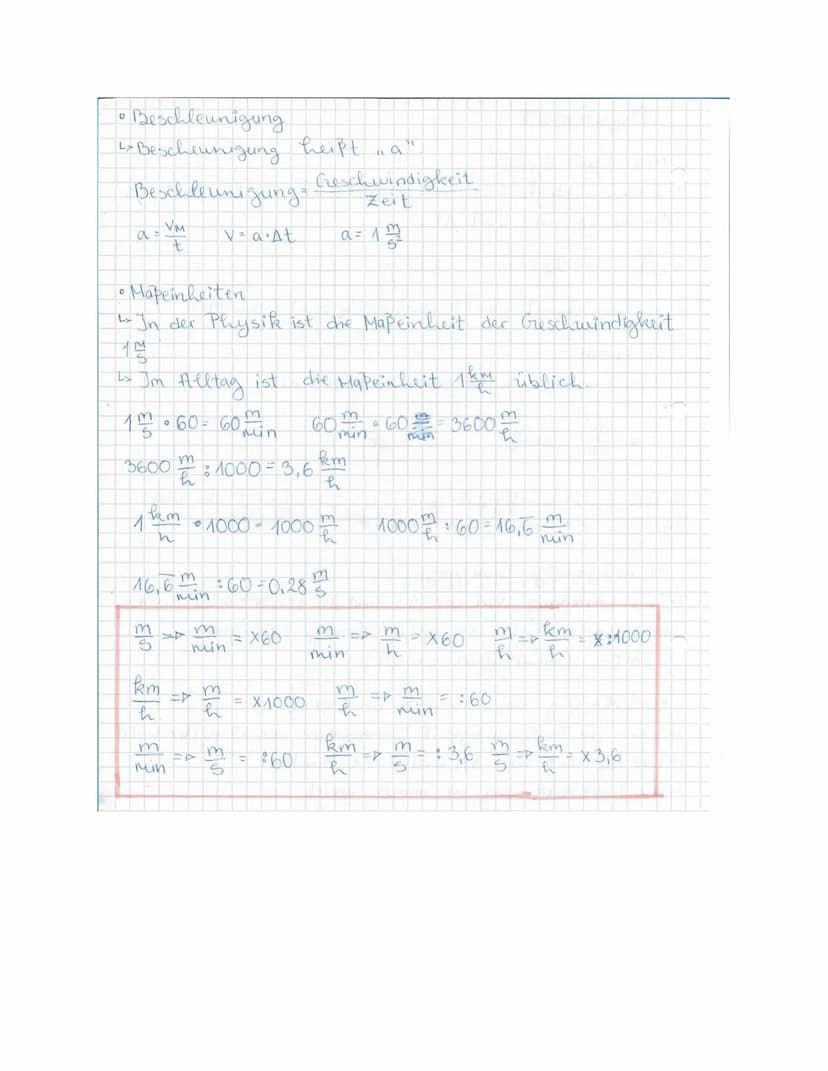 • Beschleunigung
↳ Bescheunigung heißt „a"
Beschleunigung = Geschwindigkeit / Zeit
a = VM/t    V = a·Δt    a = 1 m/s²
• Maßeinheiten
↳ In der Physik ist die Maßeinheit der Geschwindigkeit
1 M/s
↳ Im Alltag ist die Maßeinheit 1 km/h üblich.
1 m/s • 60 = 60 m/min    60 m/min • 60 = 3600 m/h
3600 m/h : 1000 = 3,6 km/h
1 km/h • 1000 = 1000 m/h    1000 m/h : 60 = 16,6̅ m/min
16,6̅ m/min : 60 = 0,28 m/s
m/s => m/min = x60    m/min => m/h = x60    m/h => km/h = x:1000
km/h => m/h = x1000    m/h => m/min = :60
m/min => m/s = :60    km/h => m/s = :3,6    m/s => km/h = x3,6